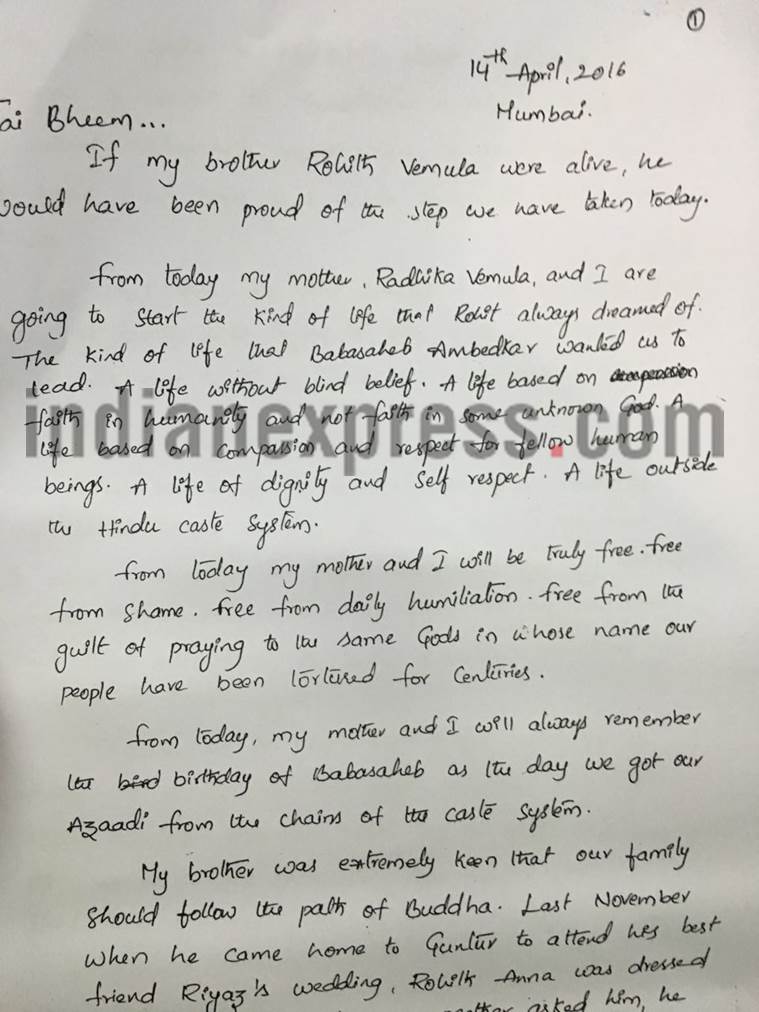 ①
14th April, 2016
Mumbai.
Jai Bheem...
If my brother Rohith Vemula were alive, he
would have been proud of the step we have taken today.
From today my mother, Radhika Vemula, and I are
going to start the kind of life that Rohit always dreamed of.
The kind of life that Babasaheb Ambedkar wanted us to
lead. A life without blind belief. A life based on
faith in humanity and not faith in some unknown God. A
life based on compassion and respect for fellow human
beings. A life of dignity and self respect. A life outside
the Hindu caste system.
indianexpress.com
From today my mother and I will be truly free. free
from shame. free from daily humiliation. free from the
guilt of praying to the same Gods in whose name our
people have been tortured for centuries.
From today, my mother and I will always remember
the bird birthday of Babasaheb as the day we got our
Azaadi from the chains of the caste system.
My brother was extremely keen that our family
should follow the path of Buddha. Last November
when he came home to Guntur to attend hes best
friend Riyaz's wedding, Rohith Anna was dressed
asked him, he